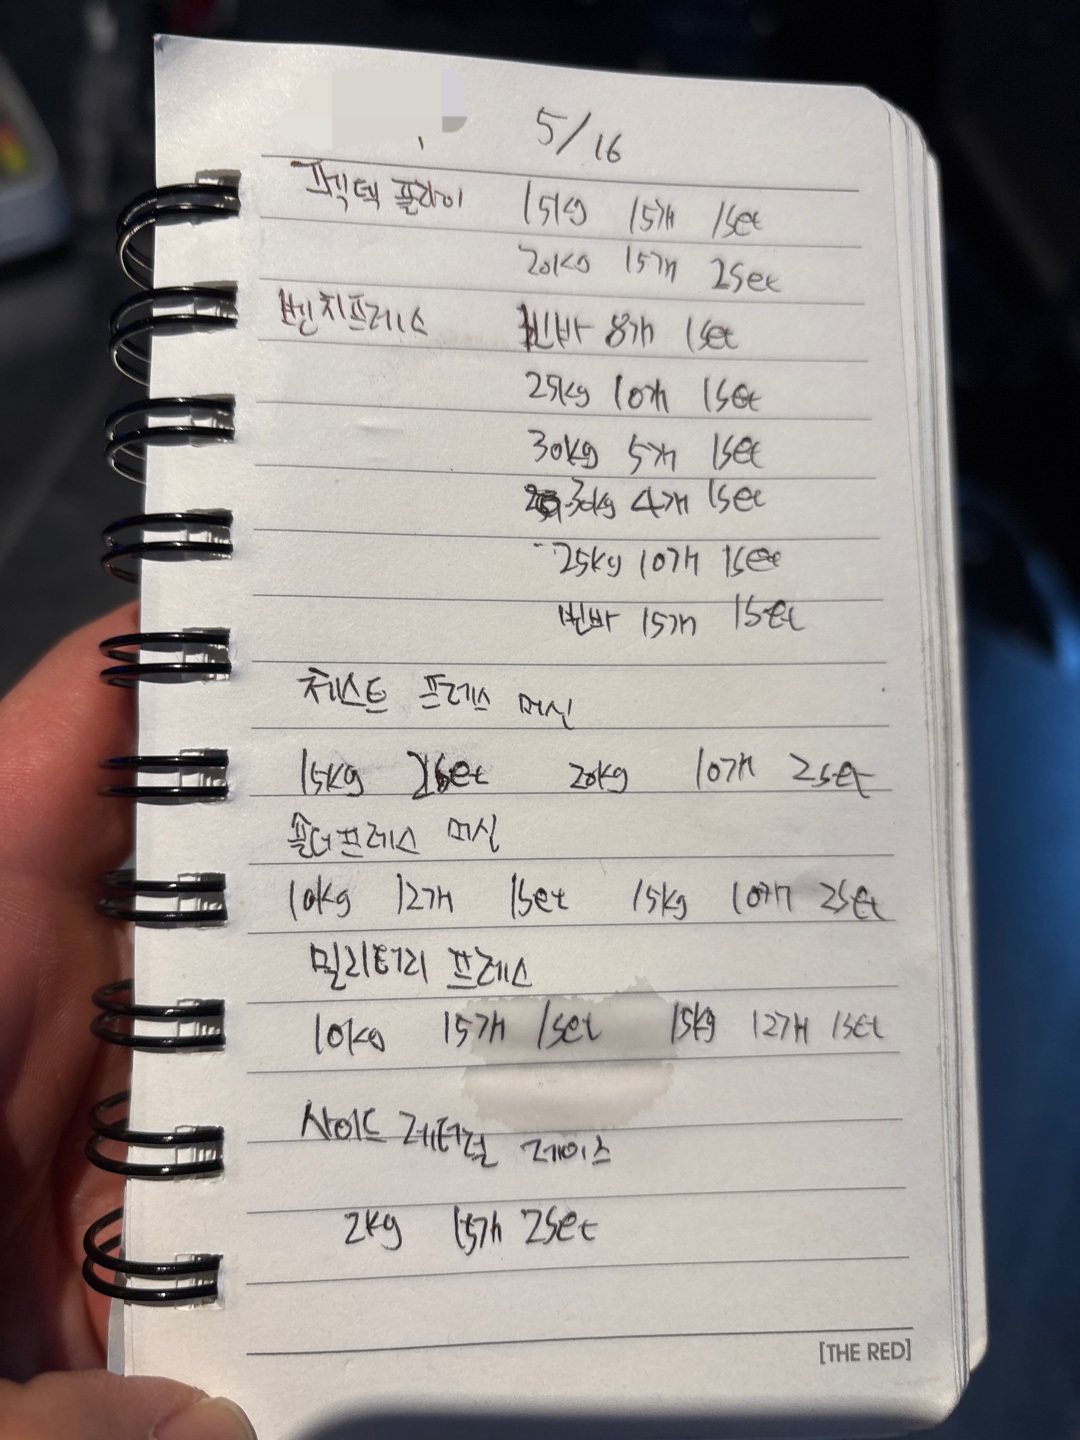 5/16
펙덱 플라이 15kg 15개 1set
20kg 15개 2set
벤치프레스 빈바 8개 1set
25kg 10개 1set
30kg 5개 1set
30kg 4개 1set
25kg 10개 1set
빈바 15개 1set
체스트 프레스 머신
15kg 2set 20kg 10개 2set
숄더프레스 머신
10kg 12개 1set 15kg 10개 2set
밀리터리 프레스
10kg 15개 1set 15kg 12개 1set
사이드 레터럴 레이스
2kg 15개 2set
[THE RED]